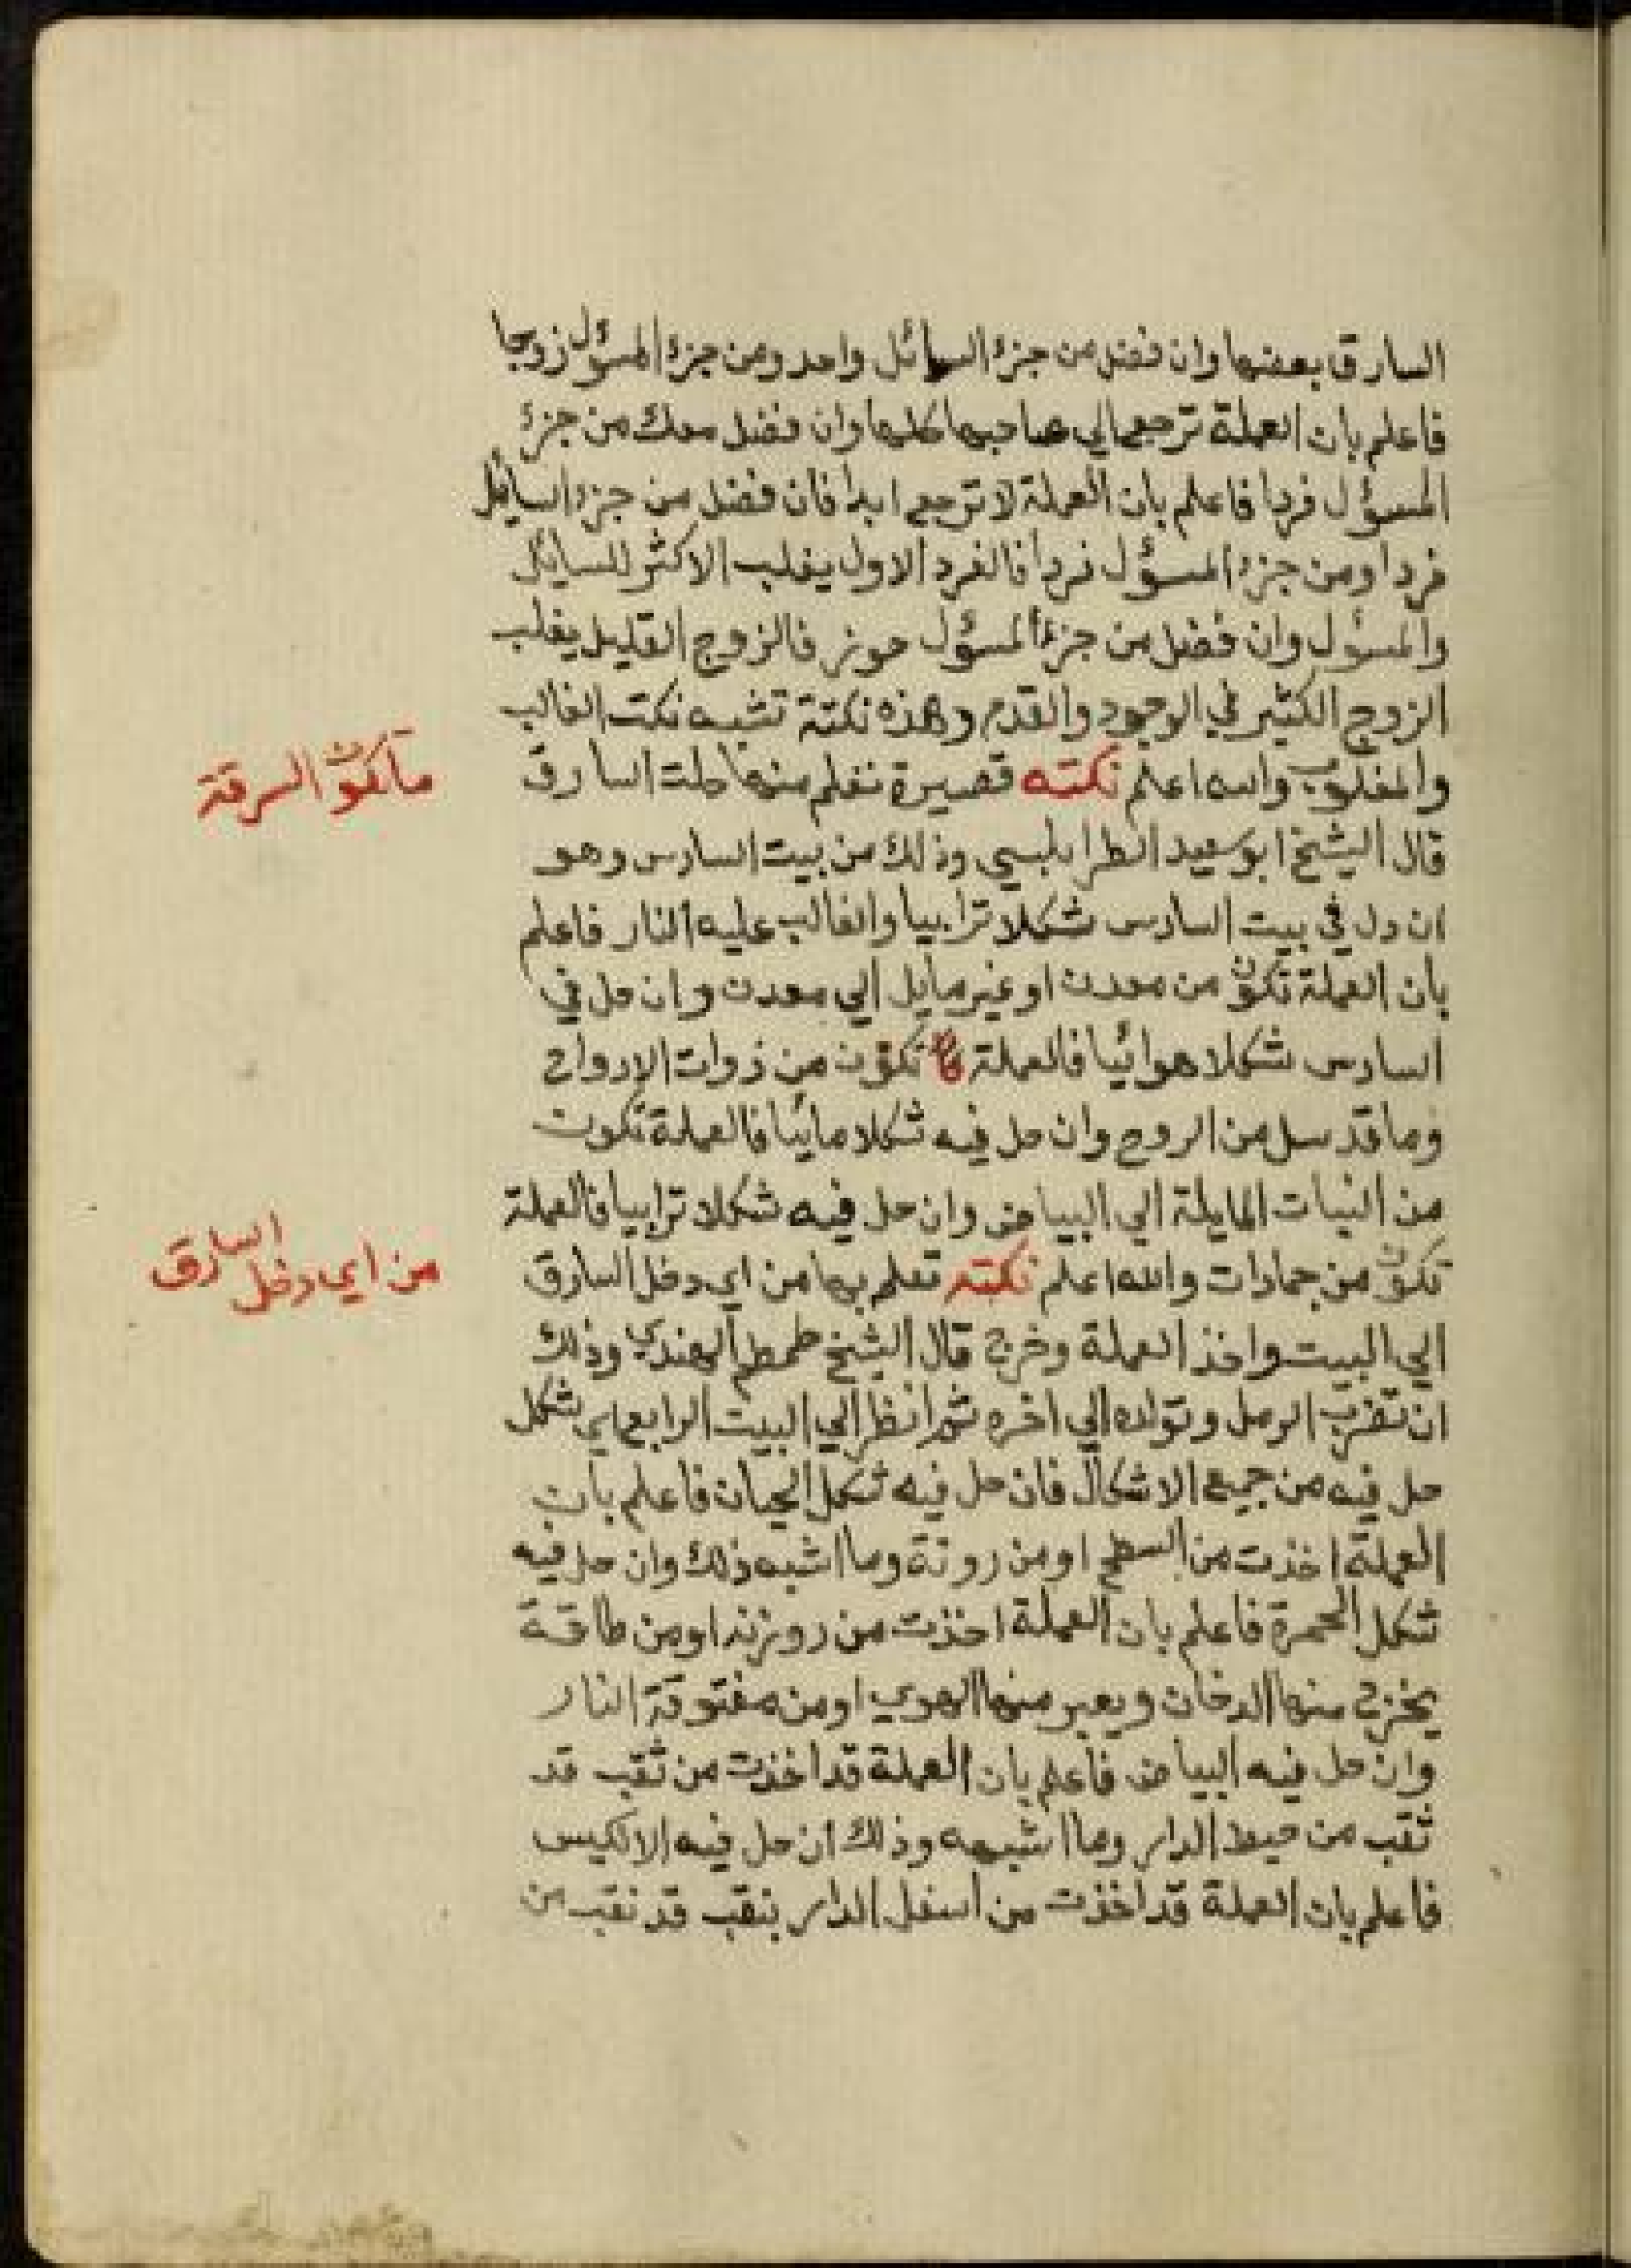 السارق بعضها وان فضل من جزء السائل واحد ومن جزء المسؤل زوجا
فاعلم بان العملة ترجع الي صاحبها كلها وان فضل معك من جزء
المسؤل فردا فاعلم بان العملة لا ترجع ابدا فان فضل من جزء السائل
فردا ومن جزء المسؤل فردا فالفرد الاول يغلب الاكثر للسايل
والمسؤل وان فضل من جزء المسؤل فالزوج القليل يغلب
الزوج الكثير في الوجود والقدم وهذه نكتة تشبه نكت الغالب
والمغلوب والله اعلم نكته قصيرة تعلم منها السارق
ما تكون السرقة
قال الشيخ ابو سعيد الطرابلسي وذلك من بيت السادس وهو
ان دل في بيت السادس شكلا ترابيا والغالب عليه النار فاعلم
بان العملة تكون من معدن او غير مايل الي معدن وان حل في
السادس شكلا هوائيا فالعملة تكون من ذوات الارواح
وما قد سل من الروح وان حل فيه شكلا مائيا فالعملة تكون
من النبات المايلة الي البياض وان حل فيه شكلا ترابيا فالعملة
تكون من جمادات والله اعلم نكته تعلم بها من اي دخل السارق
من اي دخل السارق
الي البيت واخذ العملة وخرج قال الشيخ طمطم الهندي وذلك
ان تضرب الرمل وتولده الي اخره ثم انظر الي البيت الرابع اي شكل
حل فيه من جميع الاشكال فان حل فيه شكل الحيان فاعلم بان
العملة اخذت من السطح او من روزنة وما اشبه ذلك وان حل فيه
شكل الحمرة فاعلم بان العملة اخذت من روزنه او من طاقة
يخرج منها الدخان ويعبر منها الهوي او من النار
وان حل فيه البياض فاعلم بان العملة قد اخذت من ثقب قد
ثقب من حيط الدار وما اشبهه وذلك ان حل فيه الانكيس
فاعلم بان العملة قد اخذت من اسفل الدار بنقب قد نقب من